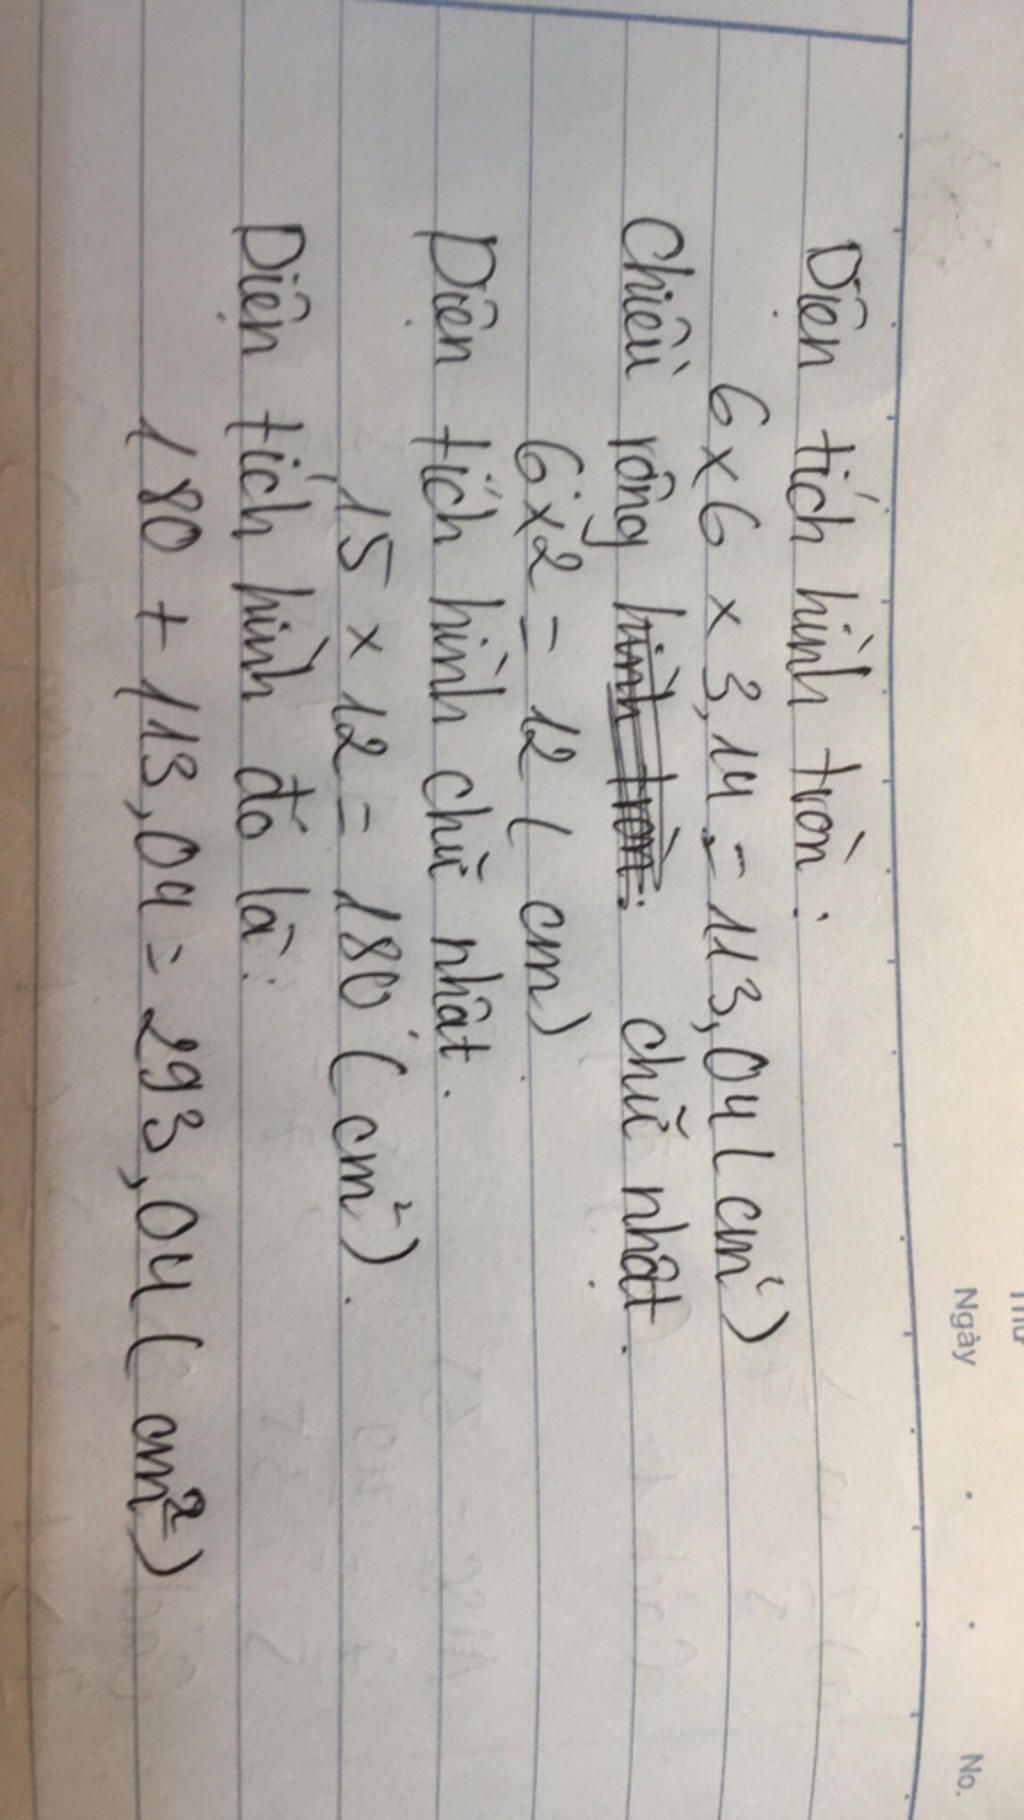 Thứ
Ngày . . No.
Diện tích hình tròn :
6 x 6 x 3,14 = 113,04 ( cm² )
Chiều rộng hình tròn: chữ nhật.
6 x 2 = 12 ( cm )
Diện tích hình chữ nhật.
15 x 12 = 180 ( cm² ).
Diện tích hình đó là:
180 + 113,04 = 293,04 ( cm² )